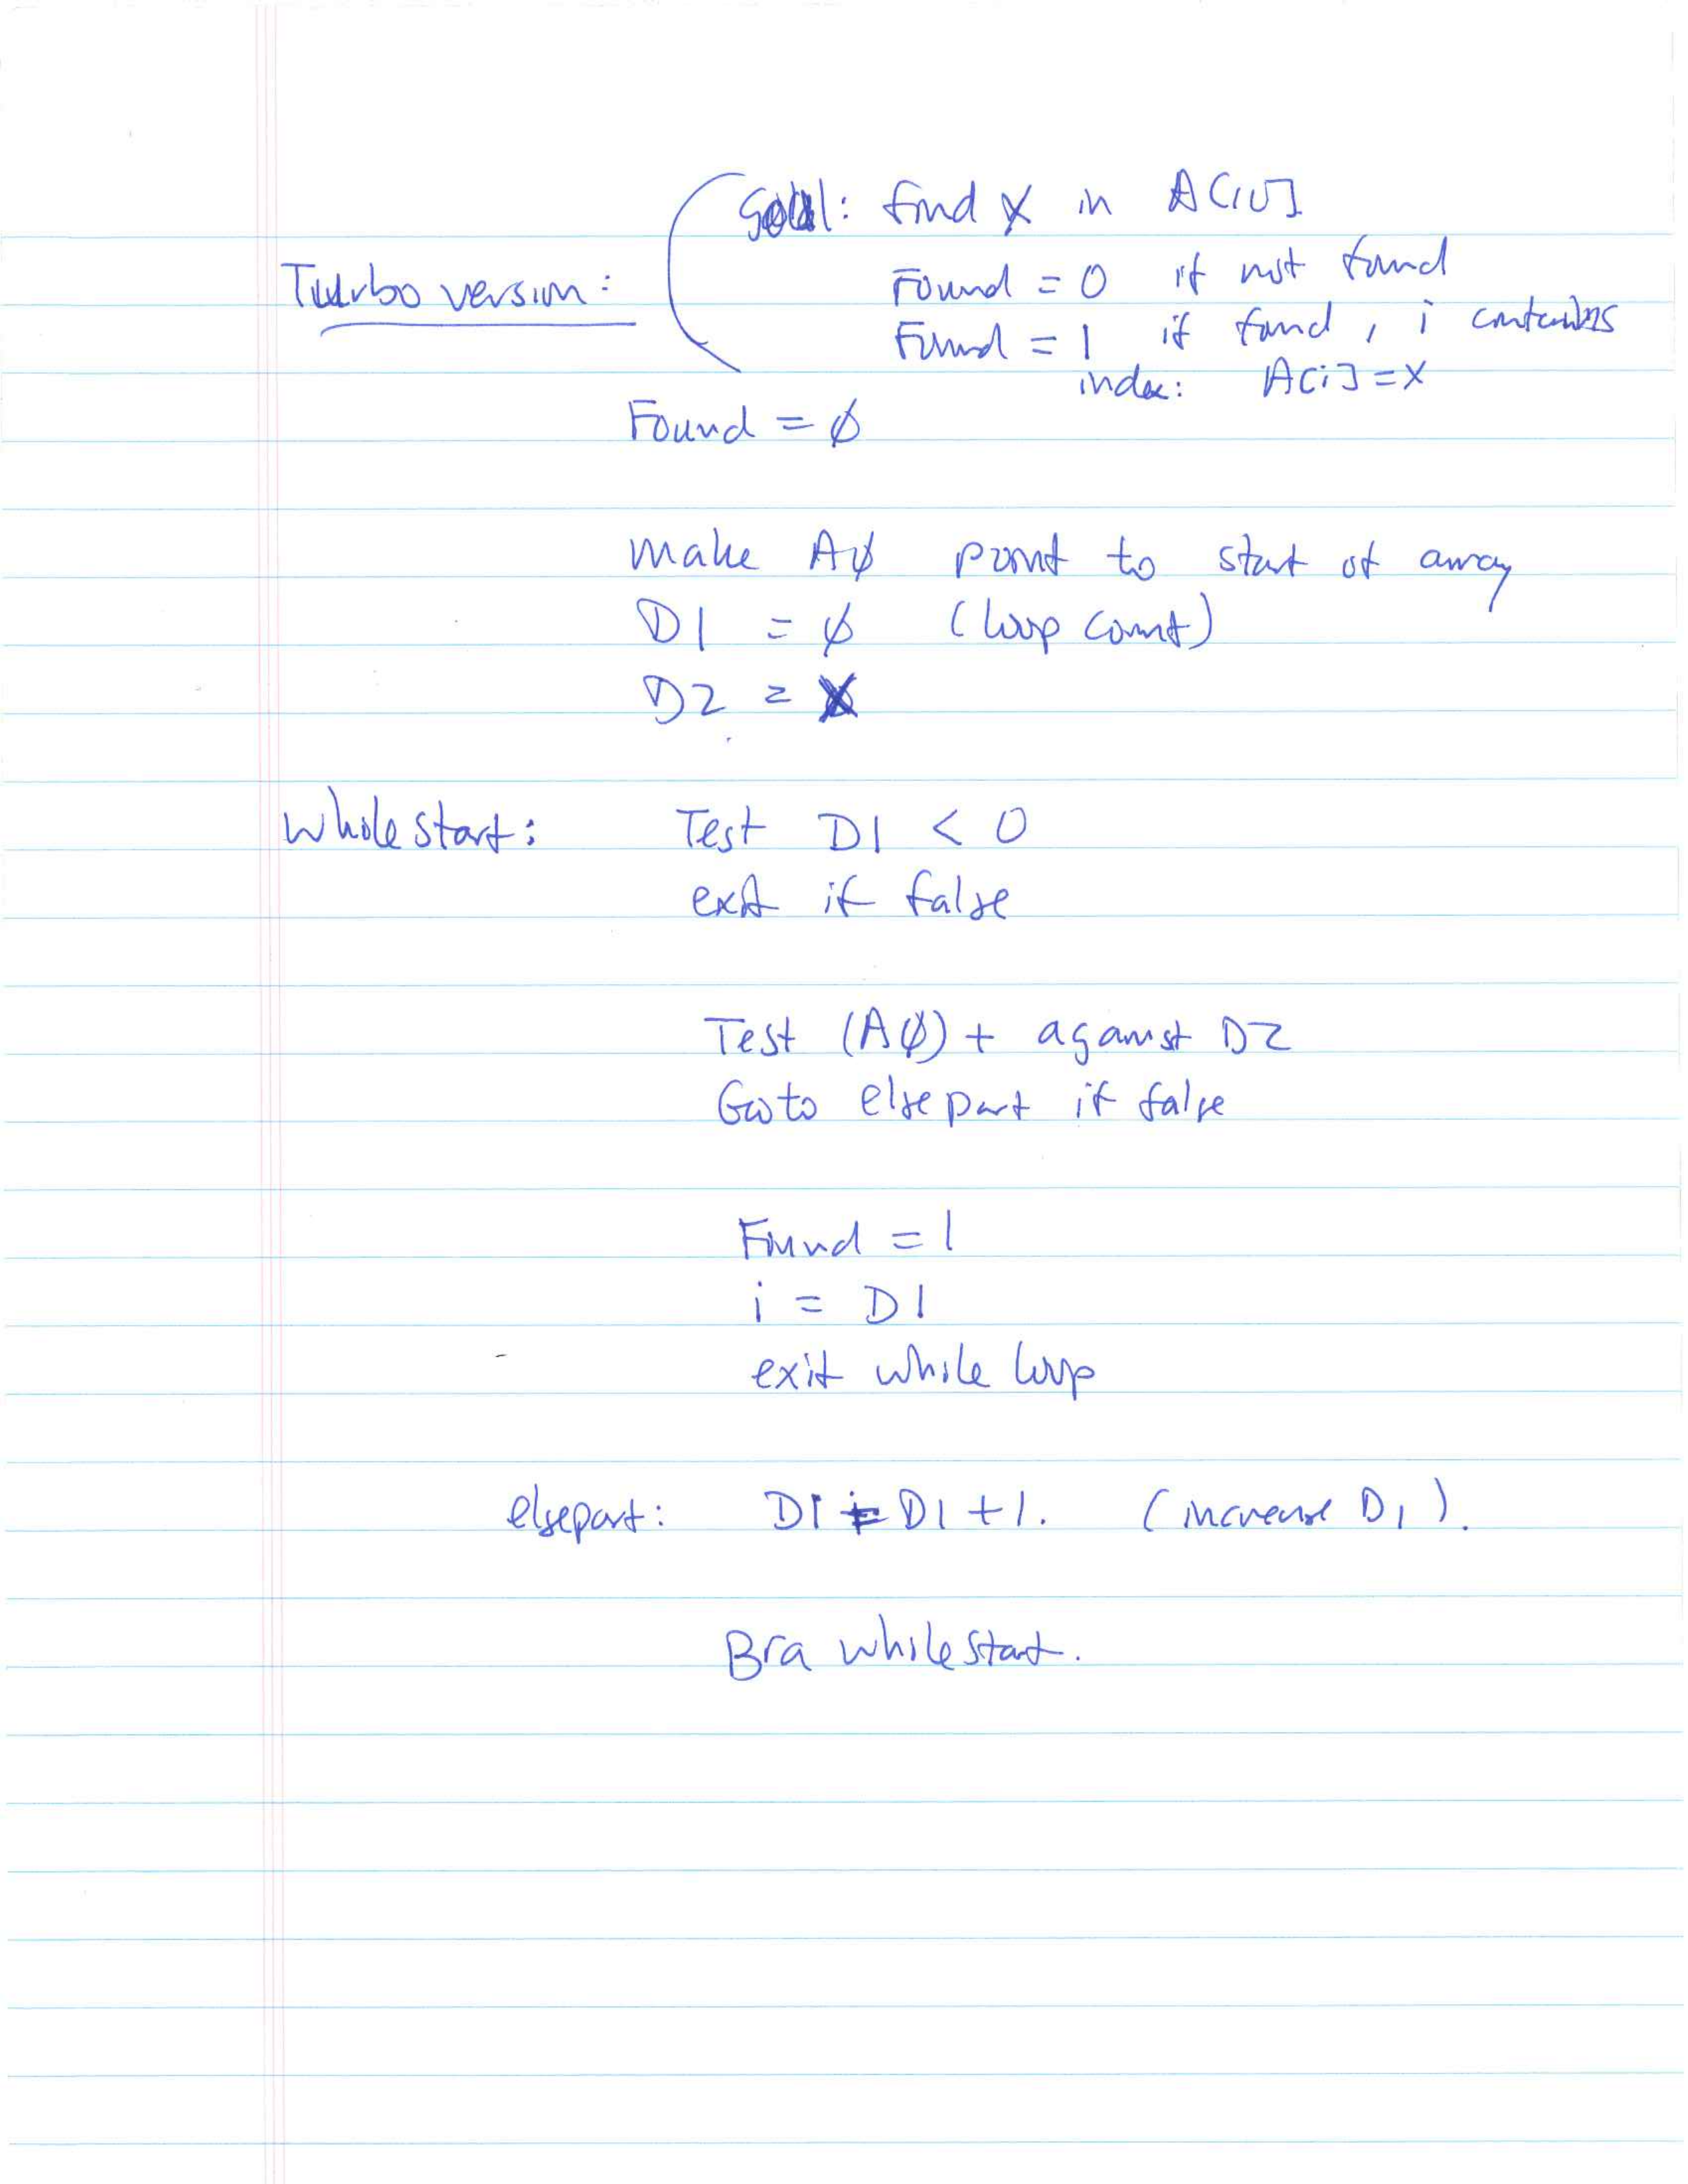 Goal: find x in A[10]
Turbo version:
Found = 0 if not found
Found = 1 if found, i contains
index: A[i] = x
Found = ø
make Aø point to start of array
D1 = ø (loop count)
D2 = X
whilestart: Test D1 < 0
exit if false
Test (Aø)+ against D2
Goto elsepart if false
Found = 1
i = D1
exit while loop
elsepart: D1 = D1 + 1. (increase D1).
Bra whilestart.